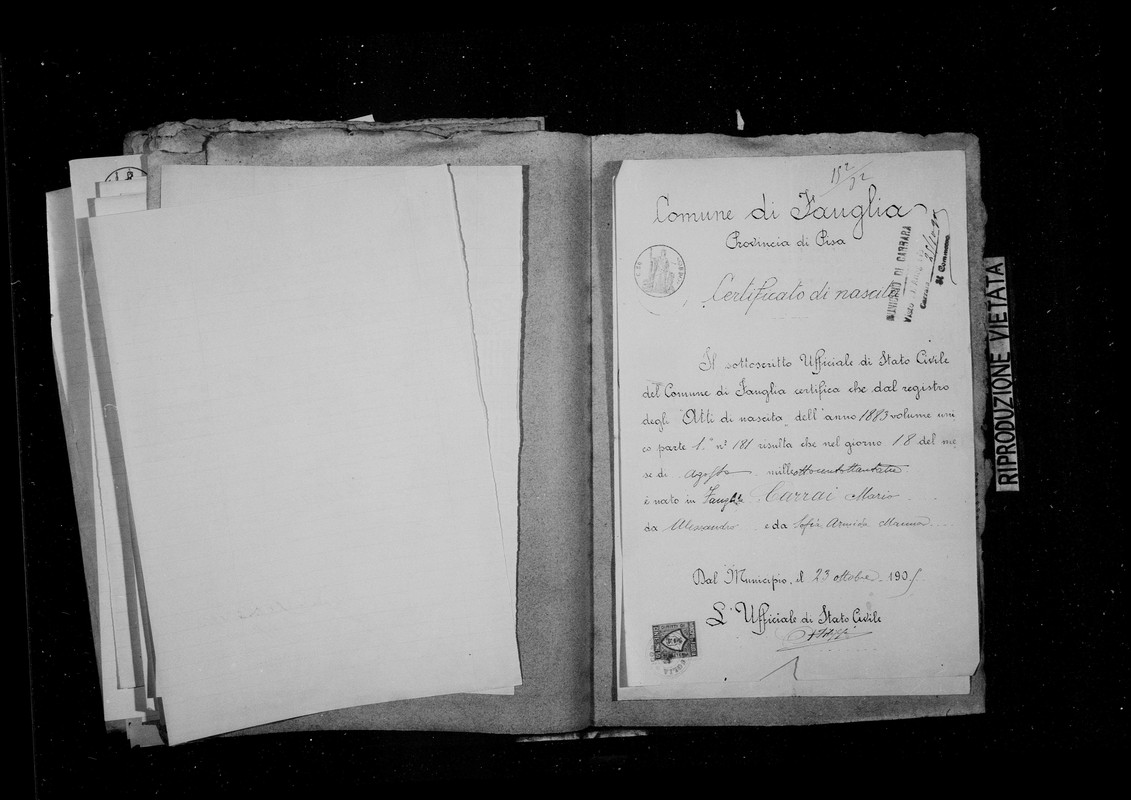 152
Comune di Fauglia
Provincia di Pisa
MUNICIPIO DI CARRARA
Visto
Carrara
Il Commesso
Certificato di nascita
Il sottoscritto Ufficiale di Stato Civile
del Comune di Fauglia certifica che dal registro
degli "Atti di nascita" dell'anno 1883 volume uni
co parte 1.ª n° 181 risulta che nel giorno 18 del me
se di agosto milleottocentottantatre
è nato in Fauglia Carrai Mario
da Alessandro e da Sofia Armida
Dal Municipio, il 23 ottobre 1905
L'Ufficiale di Stato Civile
RIPRODUZIONE VIETATA